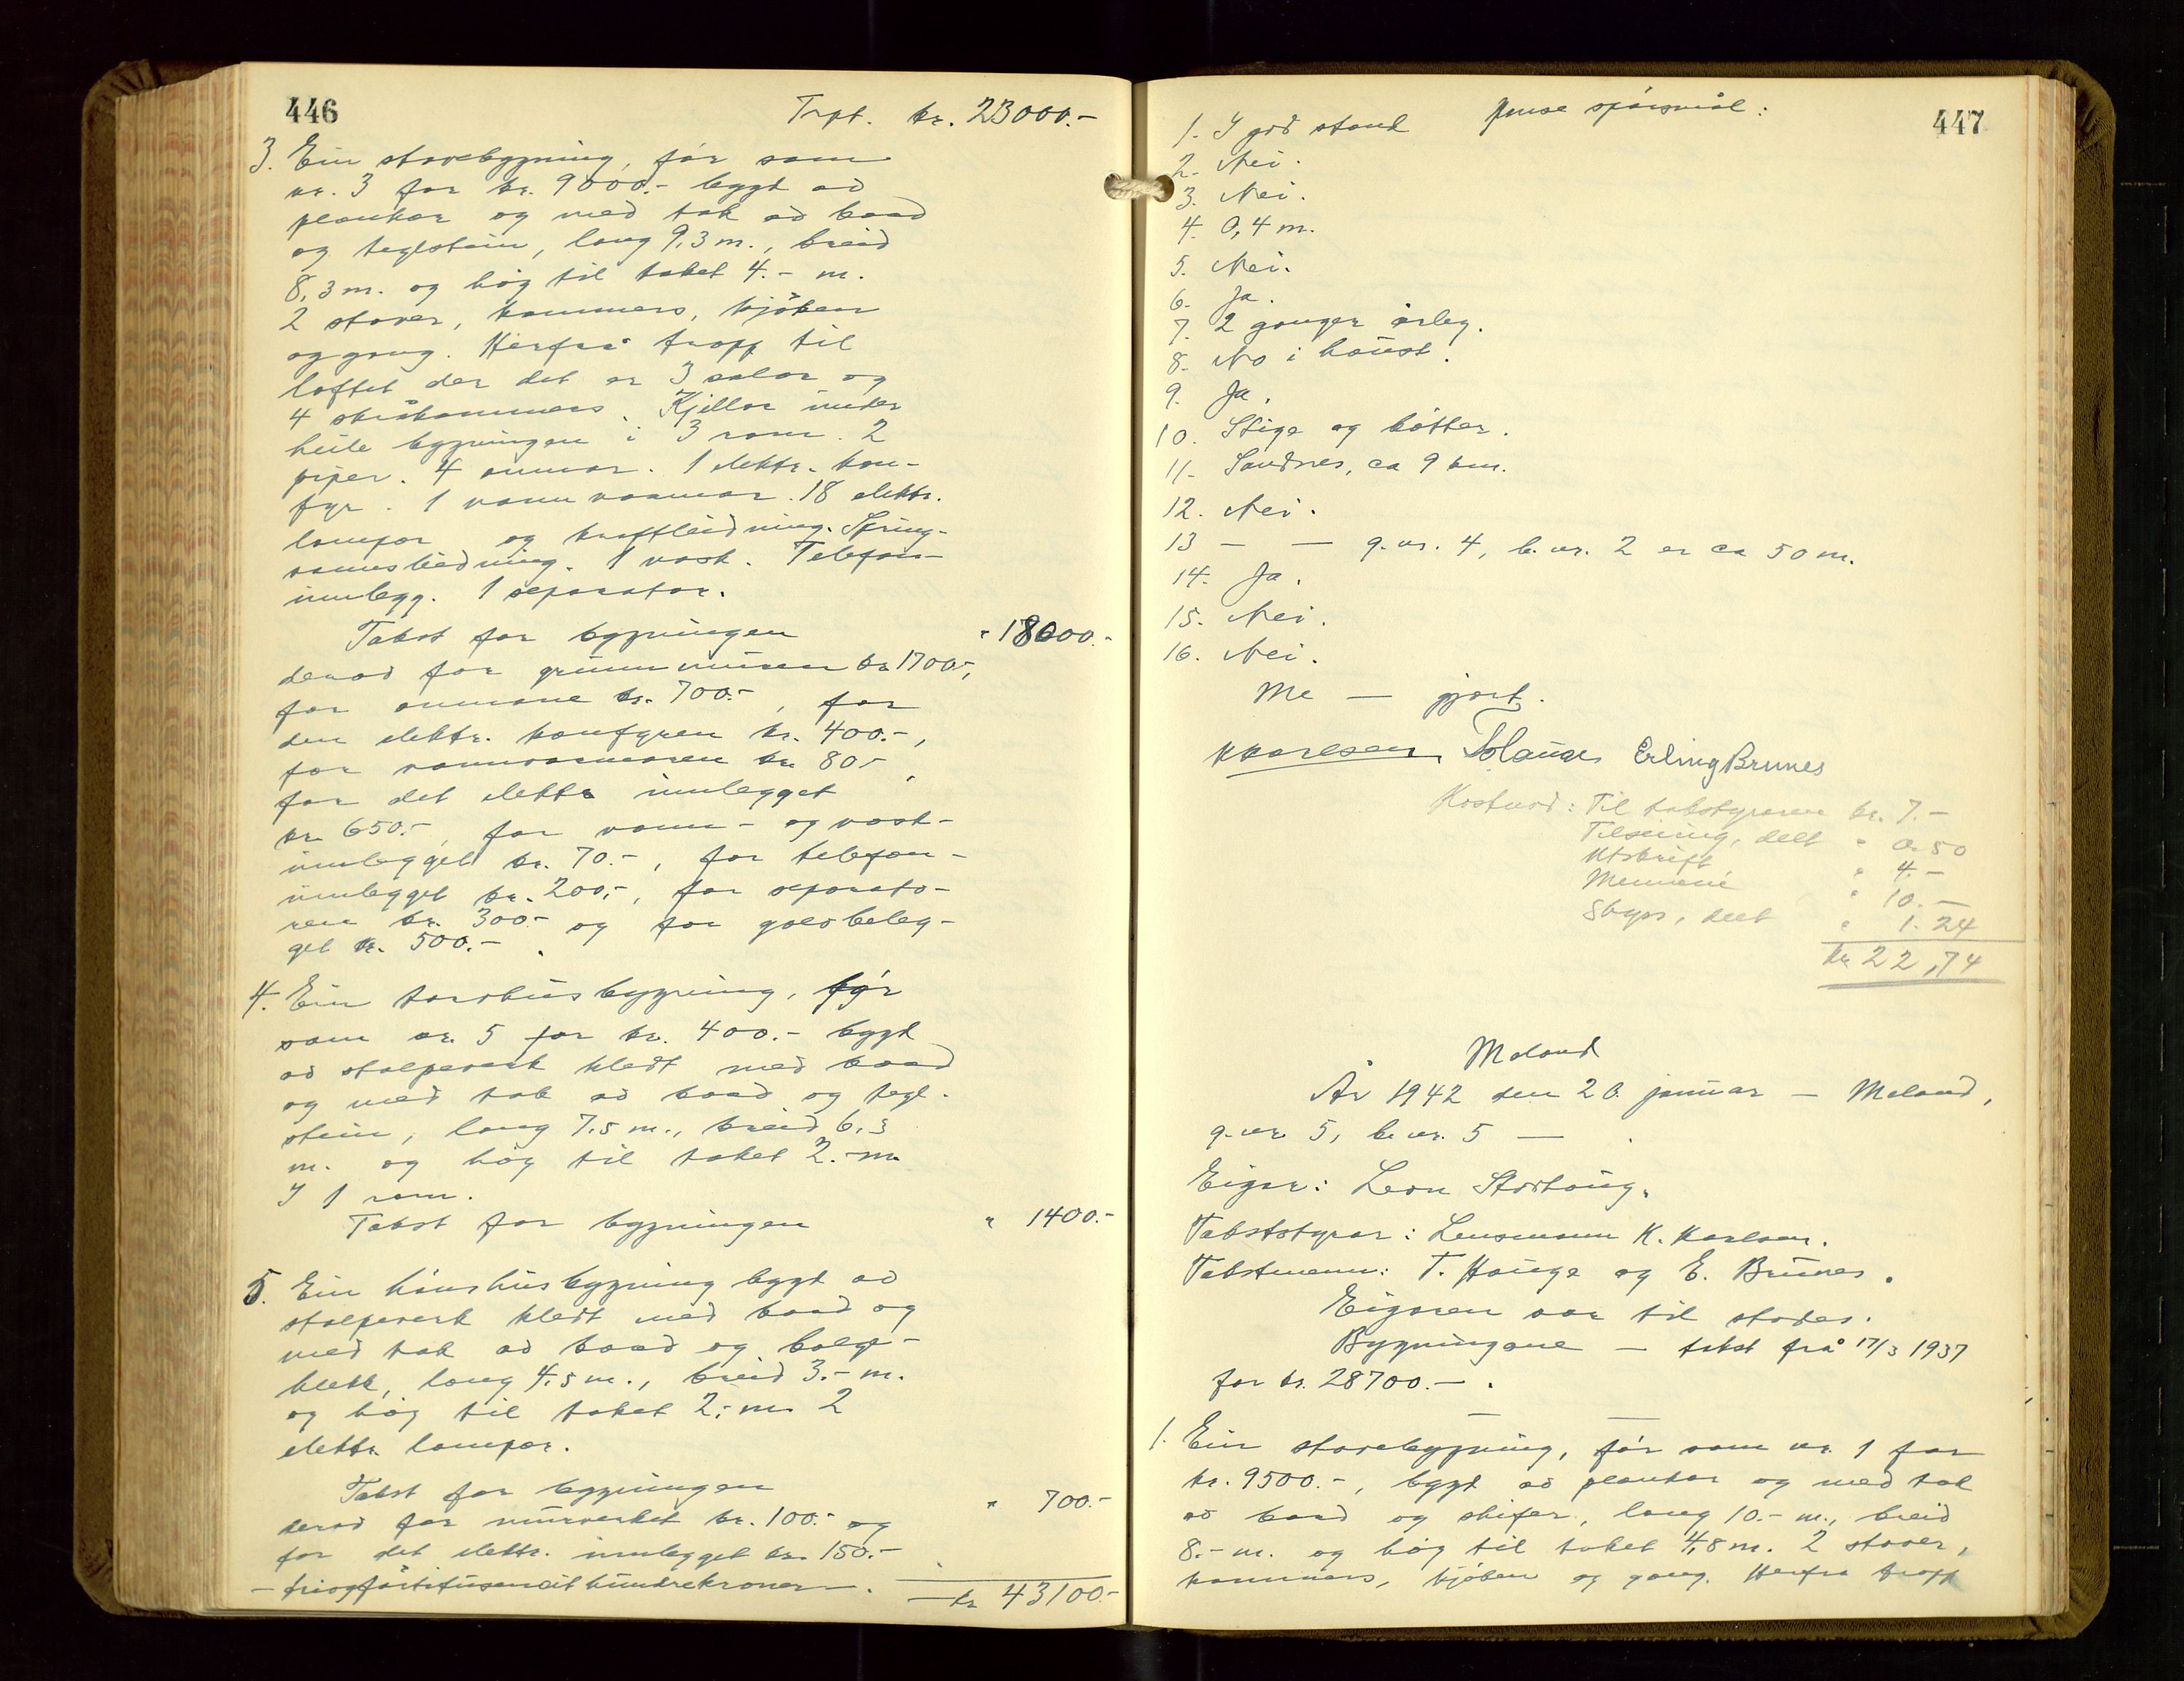 446
Trpt. kr. 23000.-
3. Ein stovebygning, før som
nr. 3 for kr. 9000.- bygt av
plankar og med tak av bord
og teglstein, lang 9,3 m., breid
8,3 m. og høg til taket 4.- m.
2 stover, kammers, kjøken
og gang. Herfrå tropp til
loftet der det er 3 salar og
4 skråkammers. Kjellar under
heile bygningen i 3 rom. 2
piper. 4 omnar. 1 elektr. kom-
fyr. 1 vannvarmar. 18 elektr.
lampor og kraftleidning. Spring-
vannsleidning. 1 vask. Telefon-
innlegg. 1 separator.
Takst for bygningen " 18000.-
derav for grunnmuren kr. 1700.-,
for omnane kr. 700.-, for
den elektr. komfyren kr. 400.-,
for vannvarmaren kr. 80.-,
for det elektr. innlegget
kr. 650.-, for vann- og vask-
innlegget kr. 70.-, for telefon-
innlegget kr. 200.-, for separato-
ren kr. 300.- og for golvbeleg-
get kr. 500.- .
4. Ein torvhusbygning, før
som nr. 5 for kr. 400.- bygt
av stolpeverk kledt med bord
og med tak av bord og tegl-
stein, lang 7.5 m., breid 6,3
m. og høg til taket 2.- m.
I 1 rom.
Takst for bygningen " 1400.-
5. Ein hønshusbygning bygt av
stolpeverk kledt med bord og
med tak av bord og bølge-
blekk, lang 4.5 m., breid 3.- m.
og høg til taket 2.- m. 2
elektr. lampor.
Takst for bygningen " 700.-
derav for murverket kr. 100.- og
for det elektr. innlegget kr. 150.-
- triogførtitusen eithundrekroner -. kr 43100.-
447
Ymse spørsmål:
1. I god stand
2. Nei.
3. Nei.
4. 0,4 m.
5. Nei.
6. Ja.
7. 2 gonger årleg.
8. No i haust.
9. Ja.
10. Stige og bøtter.
11. Sandnes, ca 9 km.
12. Nei.
13 — — g.nr. 4, b.nr. 2 er ca 50 m.
14. Ja.
15. Nei.
16. Nei.
Me — gjort.
K Karlsen T Hauge Erling Brunes
Kostnad: Til takstyraren kr. 7.-
Tilseiing, delt " 0.50
Utskrift " 4.-
Mennene " 10.-
Skyss, delt " 1.24
kr 22,74
Meland
År 1942 den 20. januar — Meland,
g.nr. 5, b.nr. 5 — .
Eigar: Leon Storhaug.
Takststyrar: Lensmann K. Karlsen.
Takstmenn: T. Hauge og E. Brunes.
Eigaren var til stades.
Bygningane — takst frå 17/3 1937
for kr. 28700.- .
1. Ein stovebygning, før som nr. 1 for
kr. 9500.-, bygt av plankar og med tak
av bord og skifer, lang 10.- m., breid
8.- m. og høg til taket 4,8 m. 2 stover,
kammers, kjøken og gang. Herfra tropp